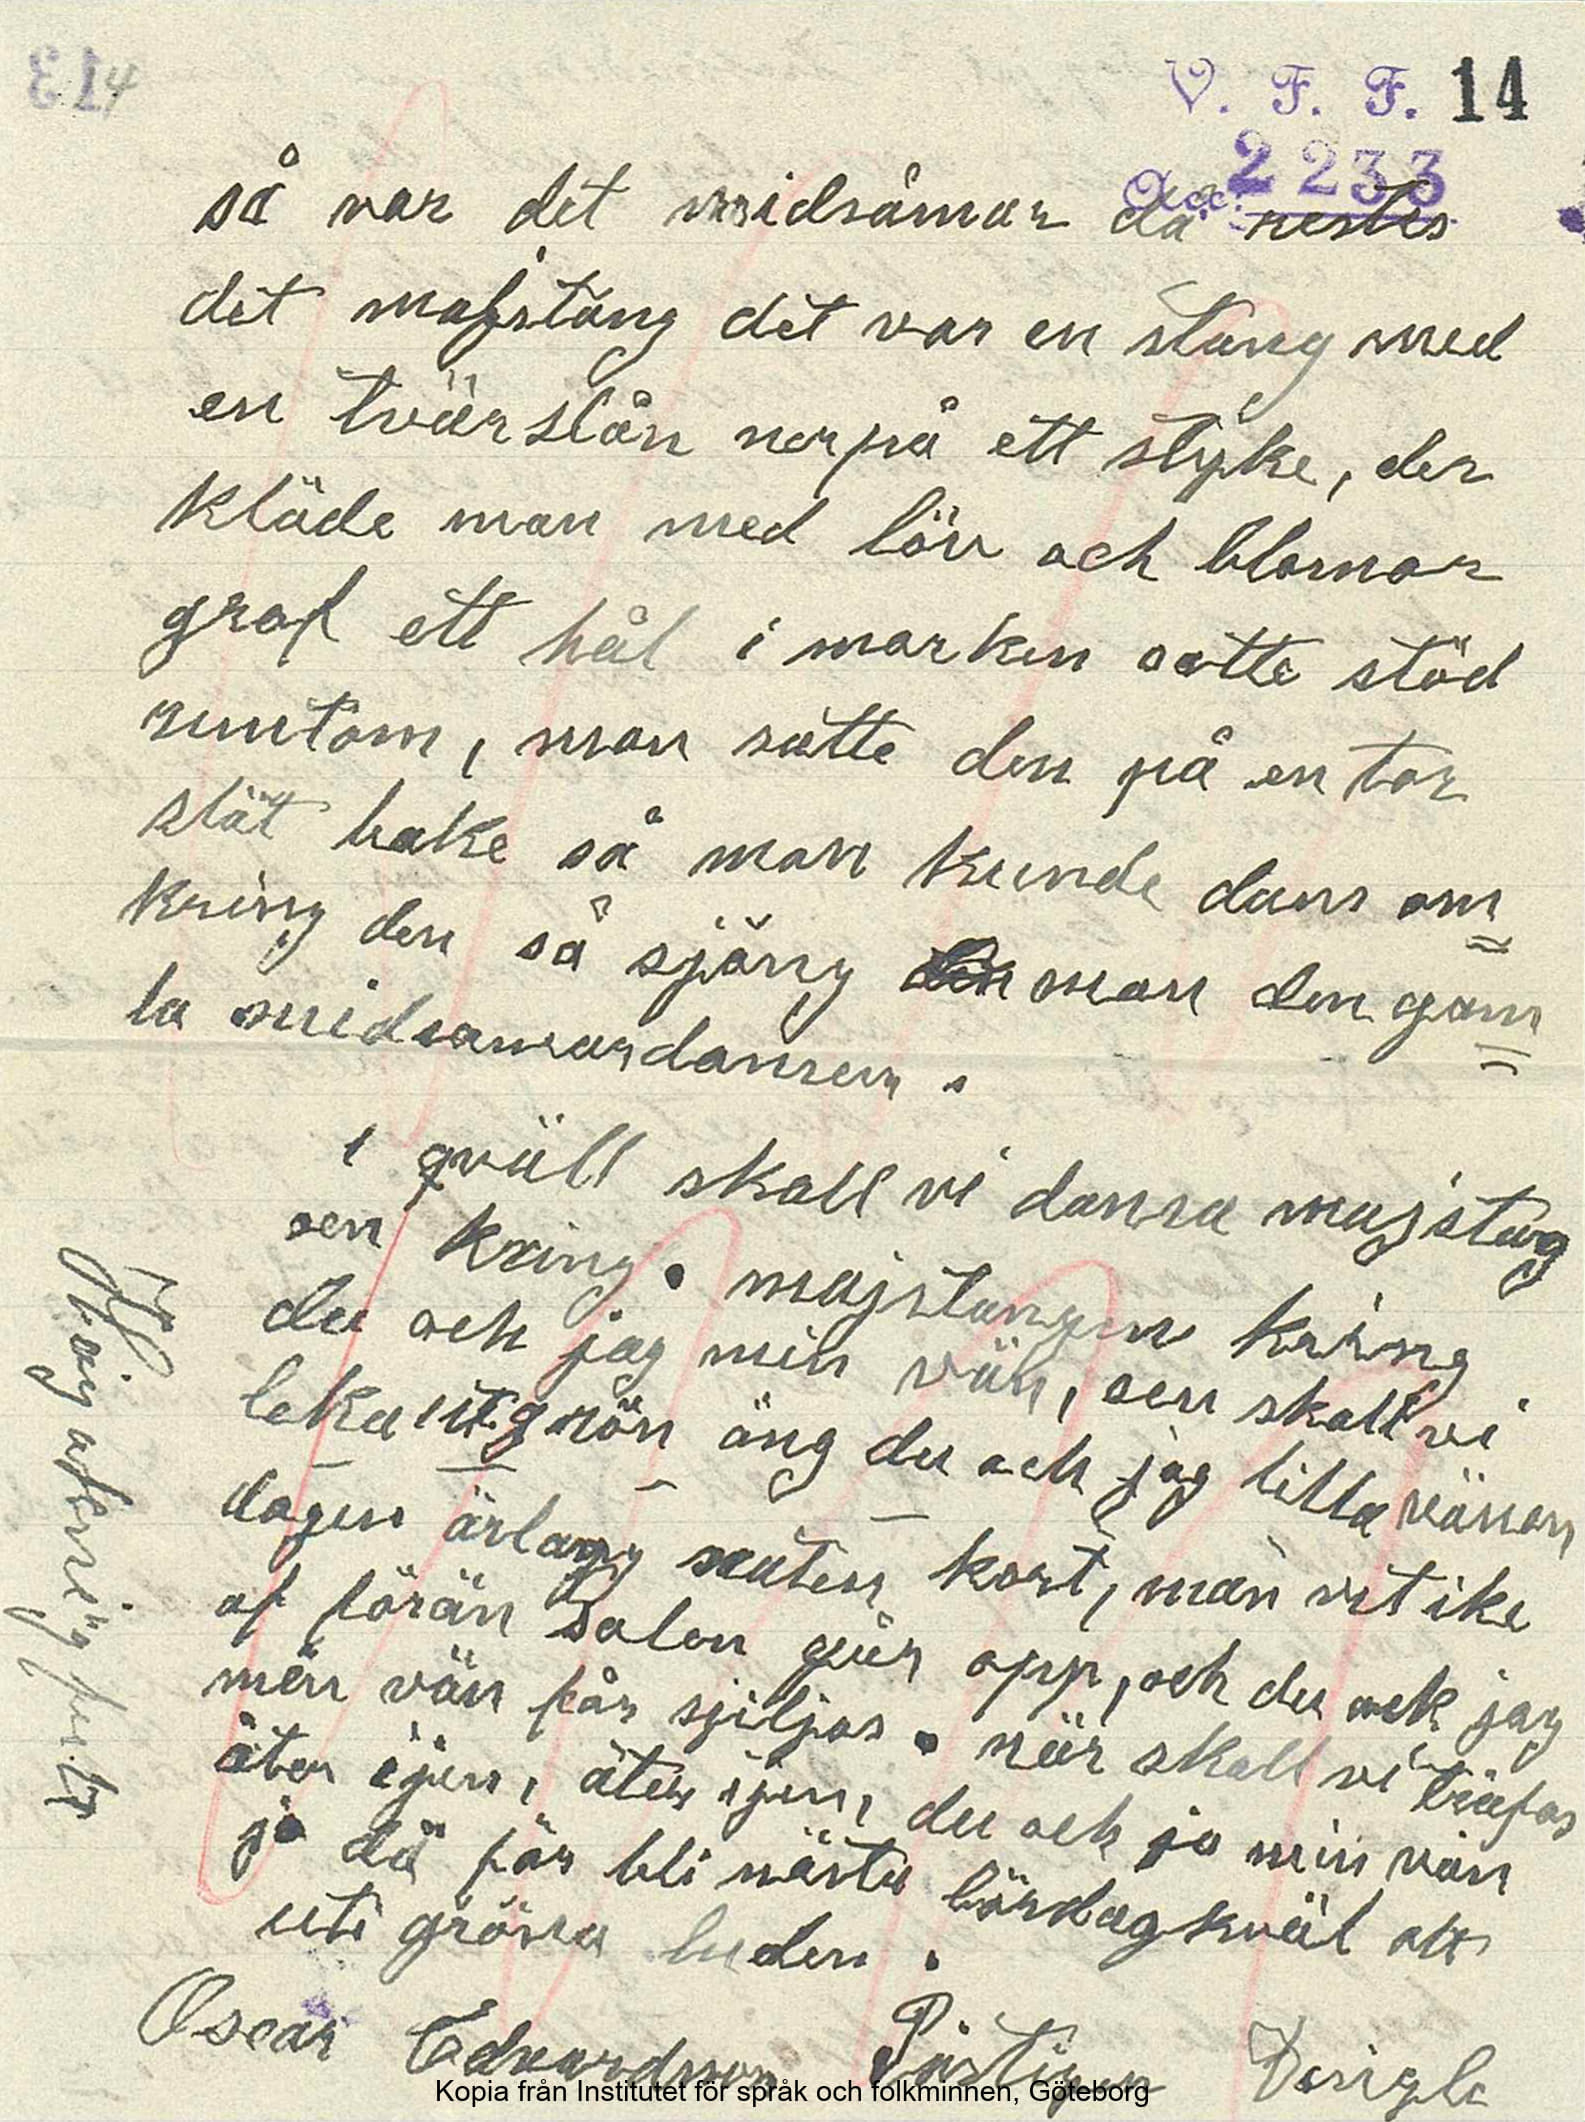 314
V. F. F. 14
Acc. 2233
så var det midsåmar då restes
det majstång det var en stång med
en tvärslån nerpå ett styke, den
kläde man med löv och blomor
graf ett hål i marken satte stöd
runtom, man satte den på en tor
slät bake så man kunde dans om
kring den så sjöng man den gam
la midsamardansen.
i qväll skall vi dansa majstång
sen kring. majstangen kring
du och jag min vän, sen skall vi
leka ut grön äng du och jag lilla vänen
dagen är lang naten kort, man vet ike
af förän solen går opp, och du ock jag
min vän får sjiljas. når skall vi träfas
åter igen, åter igen, du och ja min vän
jo då får bli nästa lördagkväl att
uti gröna luden.
Oscar Edvardson
Kopia från Institutet för språk och folkminnen, Göteborg